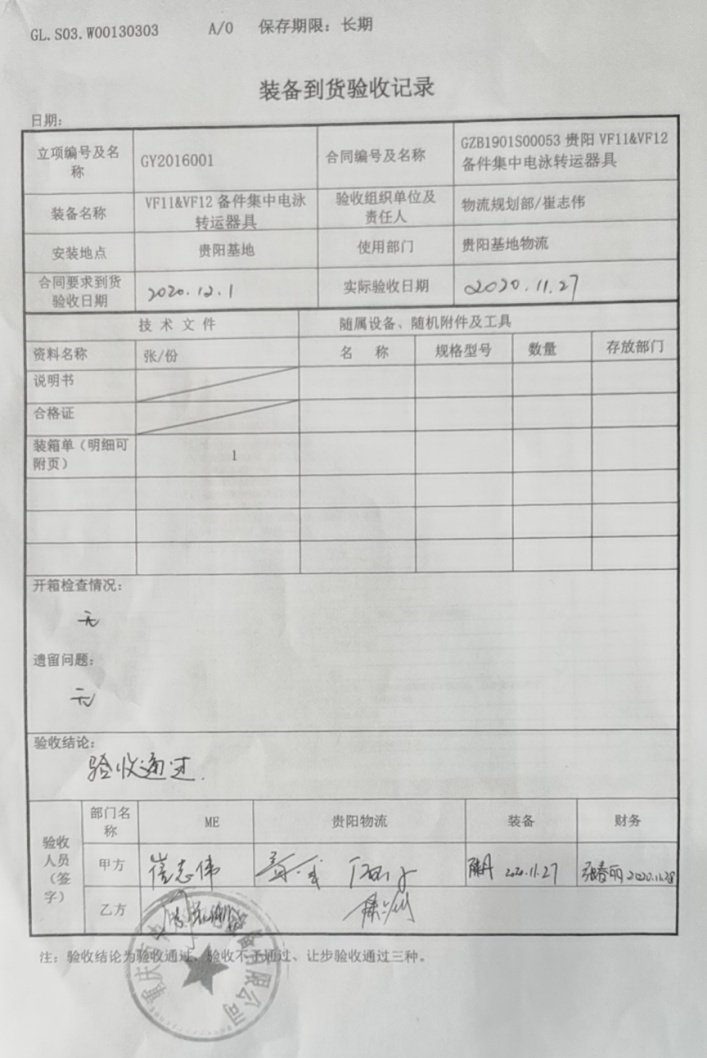 GL.S03.W00130303 A/0 保存期限：长期
装备到货验收记录
日期：
立项编号及名称 GY2016001 合同编号及名称 GZB1901S00053 贵阳 VF11&VF12 备件集中电泳转运器具
装备名称 VF11&VF12 备件集中电泳转运器具 验收组织单位及责任人 物流规划部/崔志伟
安装地点 贵阳基地 使用部门 贵阳基地物流
合同要求到货验收日期 2020.12.1 实际验收日期 2020.11.27
技术文件 随属设备、随机附件及工具
资料名称 张/份 名 称 规格型号 数量 存放部门
说明书
合格证
装箱单（明细可附页） 1
开箱检查情况：
无
遗留问题：
无
验收结论：
验收通过.
验收人员（签字） 部门名称 ME 贵阳物流 装备 财务
甲方 崔志伟 2020.11.27 张春丽 2020.11.28
乙方
注：验收结论为验收通过、验收不予通过、让步验收通过三种。